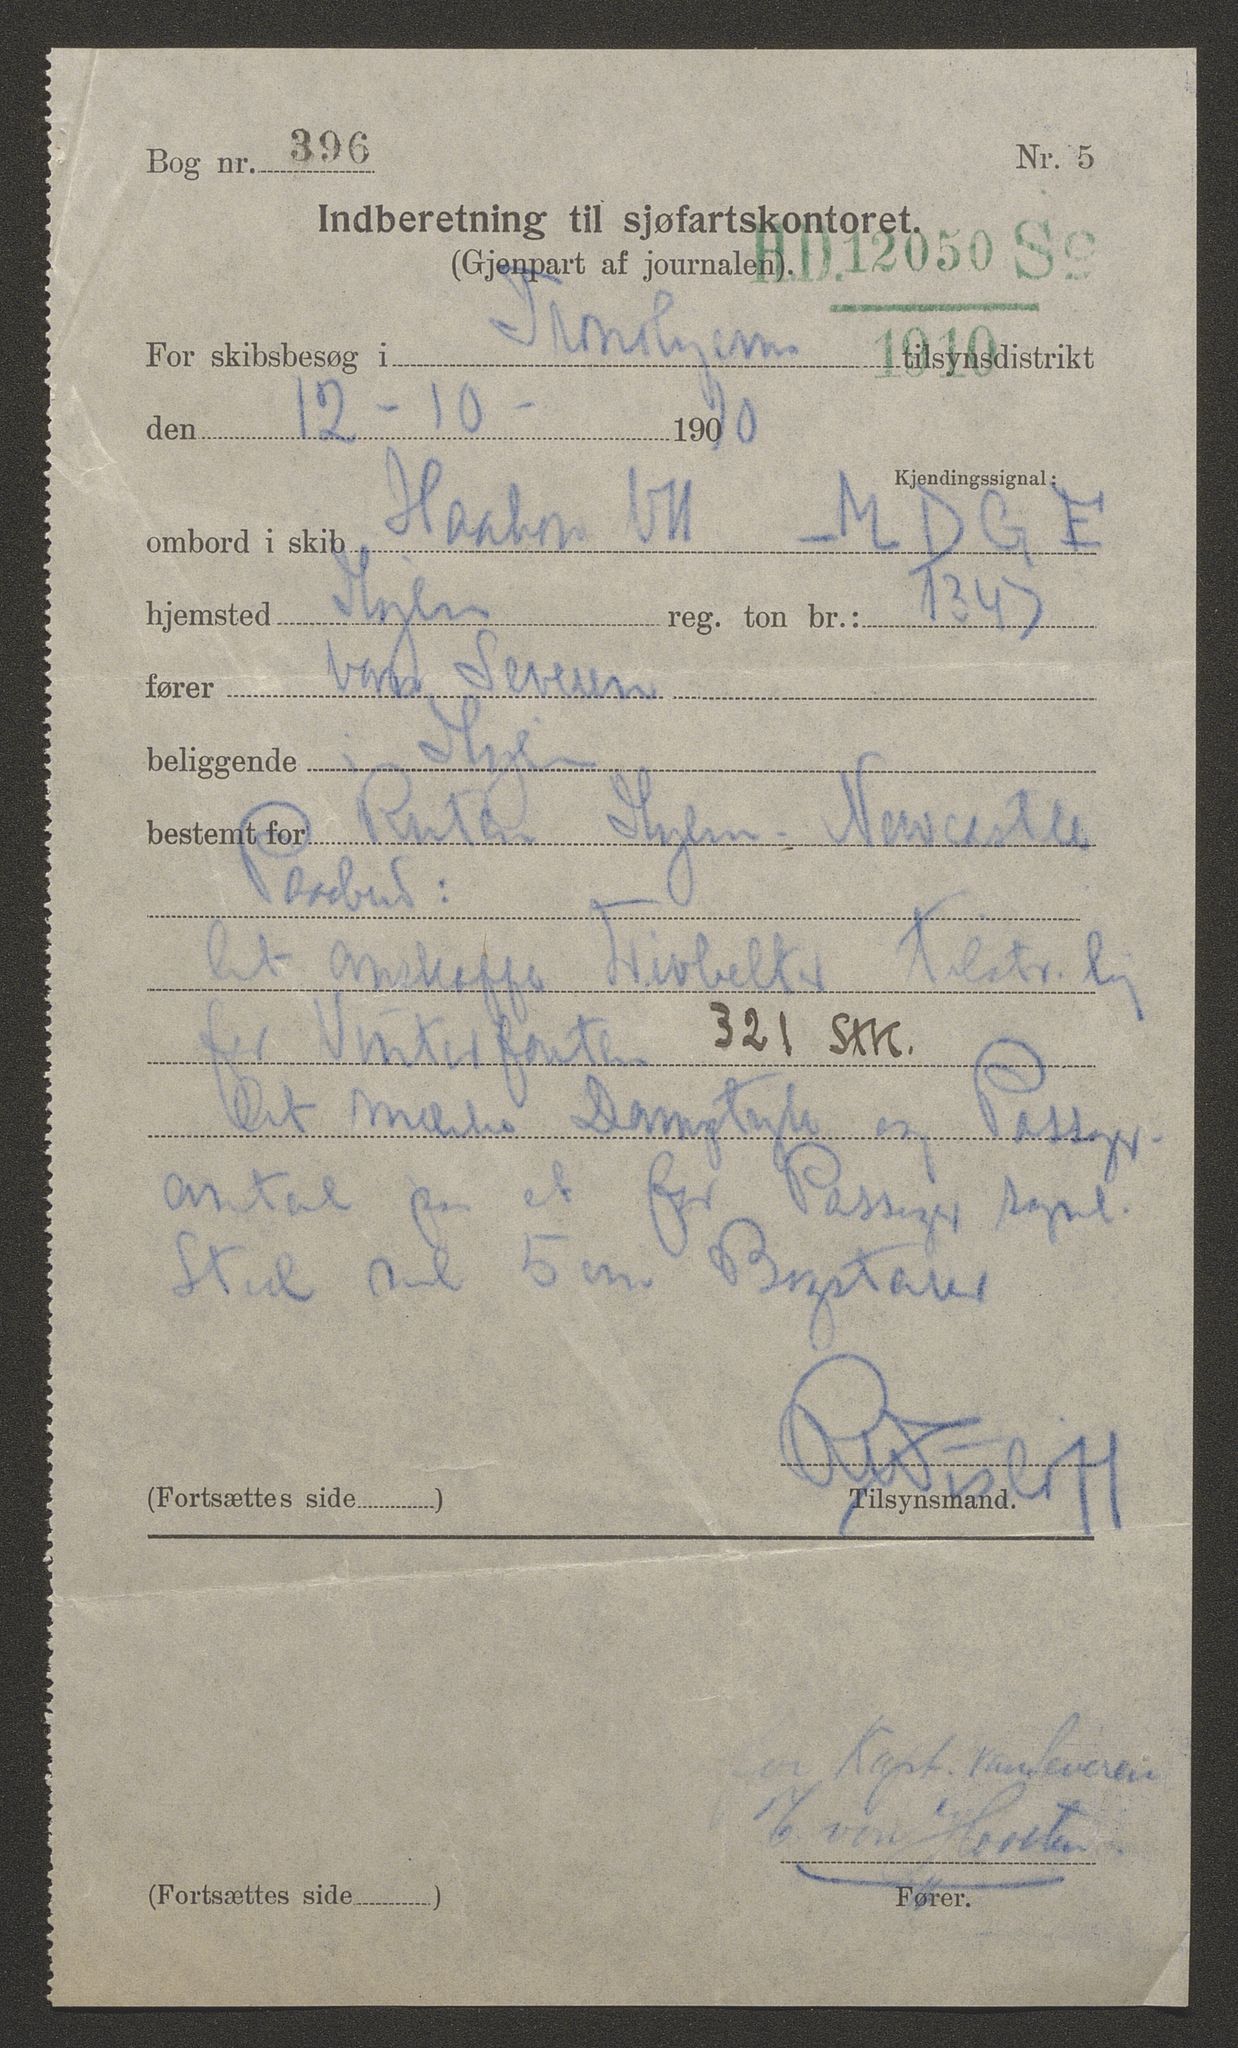 Bog nr. 396 Nr. 5
Indberetning til sjøfartskontoret.
(Gjenpart af journalen).
H.D. 12050 Sø
1910
For skibsbesøg i Tronhjem tilsynsdistrikt
den 12-10- 1910
Kjendingssignal:
ombord i skib Haakon VII - M D G F
hjemsted Thjem reg. ton br.: 1347
fører van Severen
beliggende i Thjem
bestemt for Ruten Thjem - Newcastle
Paabud:
At anskaffe Livbelter tilstr. lig
for Vinterfarten 321 Stk.
At mærke Damptryk og Passager-
antal paa et for Passager synl.
Sted med 5 cm Bogstaver
(Fortsættes side ) Tilsynsmand.
for Kapt. van Severen
von
(Fortsættes side ) Fører.